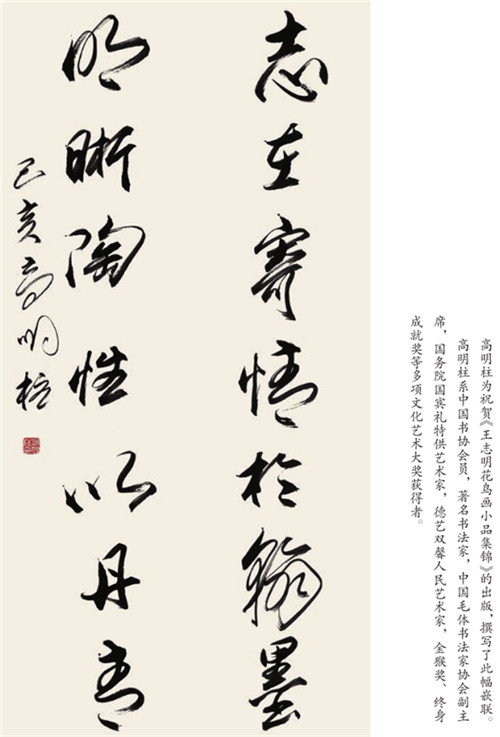 志在寄情於翰墨
明晰陶性以丹青
己亥高明柱
高明柱为祝贺《王志明花鸟画小品集锦》的出版，撰写了此幅嵌联。
高明柱系中国书协会员，著名书法家，中国毛体书法家协会副主
席，国务院国宾礼特供艺术家，德艺双馨人民艺术家，金猴奖、终身
成就奖等多项文化艺术大奖获得者。